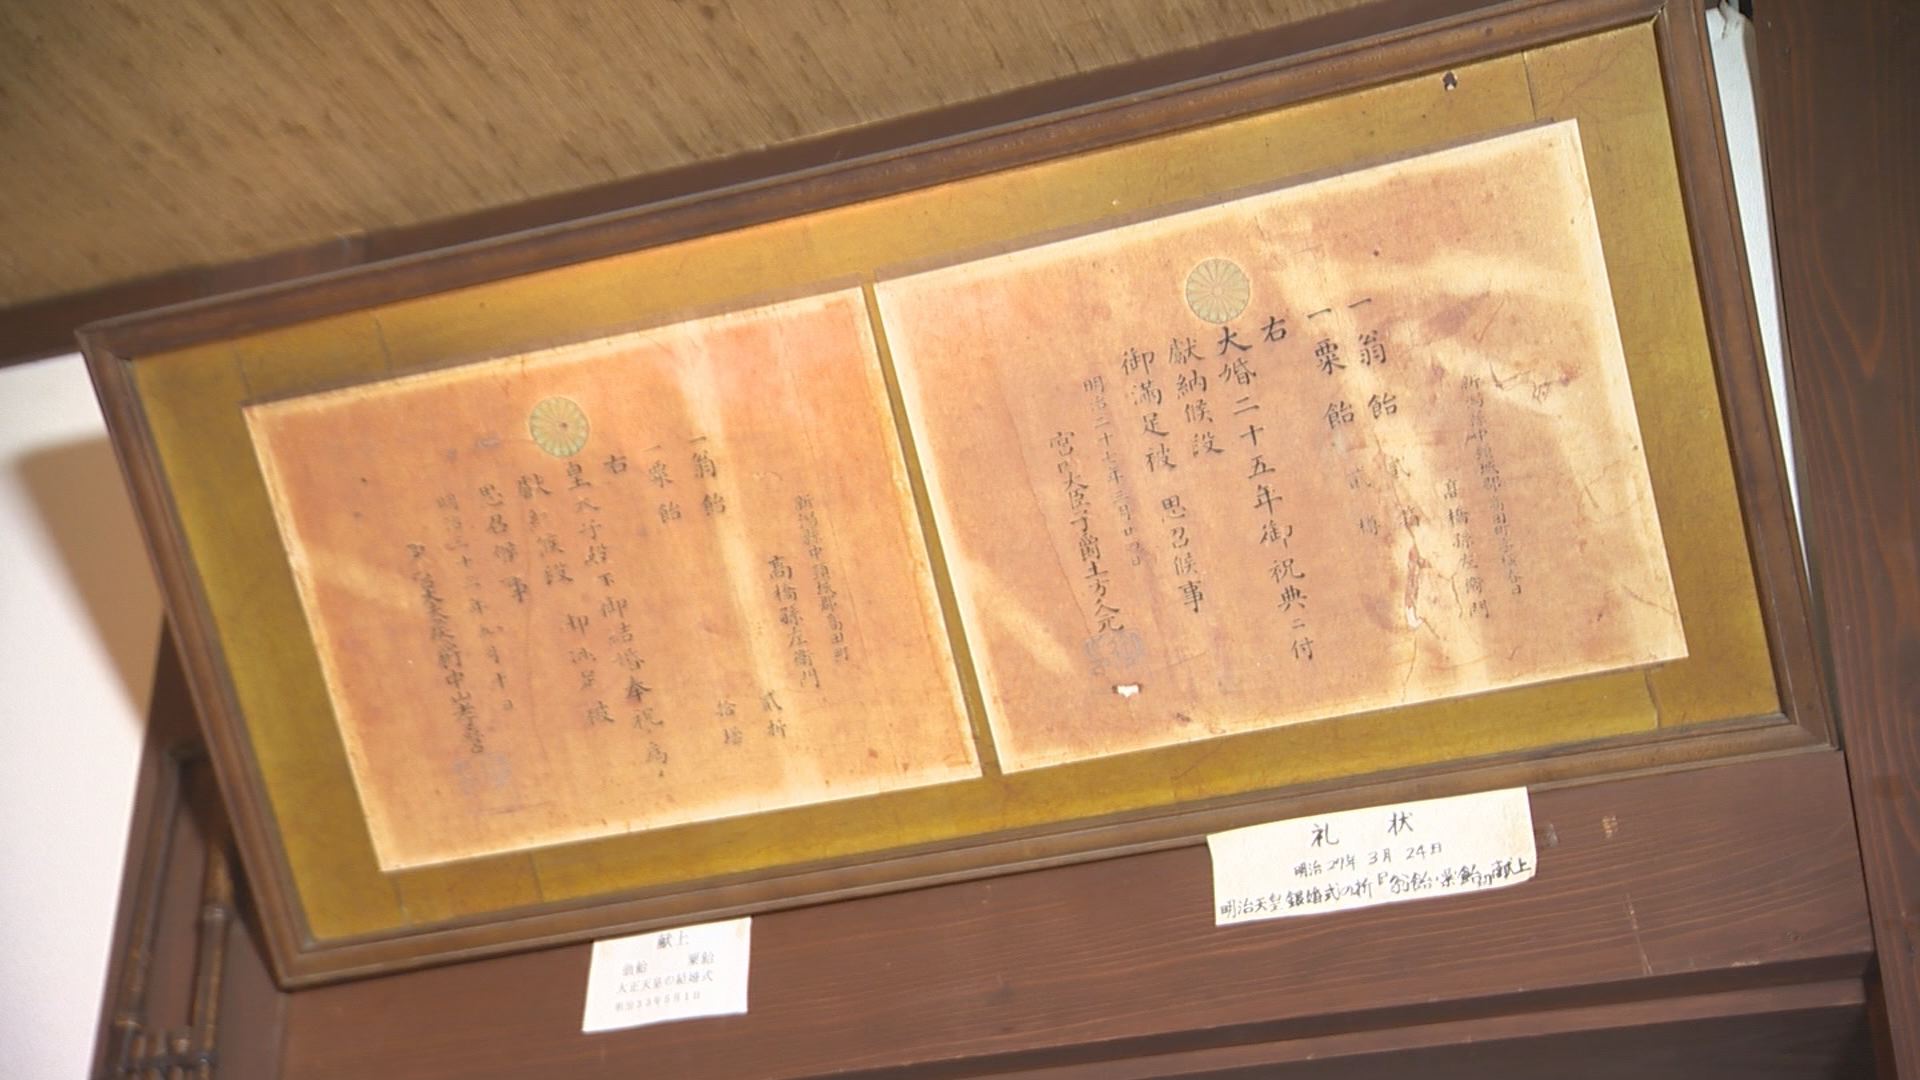 高橋孫左衛門
一翁飴 貳箱
一粟飴 貳樽
右
大婚二十五年御祝典ニ付
獻納候段
御滿足被 思召候事
明治二十七年三月廿四日
宮内大臣子爵土方久元
新潟縣中頸城郡高田町
高橋孫左衛門
一翁飴 貳折
一粟飴 拾壜
右
皇太子殿下御結婚奉祝ノ為
獻納候段 御滿足被
思召候事
明治三十三年
礼 状
明治27年 3月 24日
明治天皇銀婚式の折『翁飴・粟飴』献上
献上
翁飴 粟飴
大正天皇の結婚式
明治33年5月1日